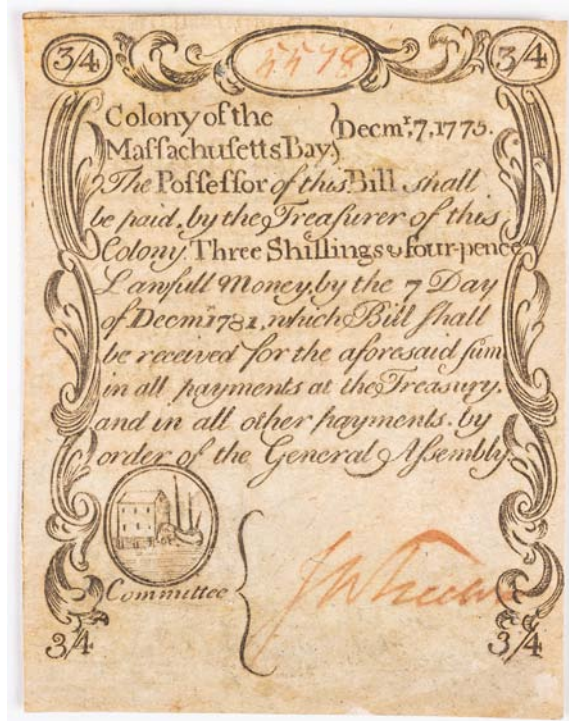 3/4 5578 3/4
Colony of the } Decmr, 7, 1775.
Maſſachuſetts Bay }
The Poſſeſſor of this Bill shall
be paid, by the Treaſurer of this
Colony Three Shillings & four-pence
Lawfull Money, by the 7 Day
of Decmr 1781, which Bill ſhall
be received for the aforesaid ſum
in all payments at the Treaſury.
and in all other payments. by
order of the General Aſſembly.
Committee {
3/4 3/4